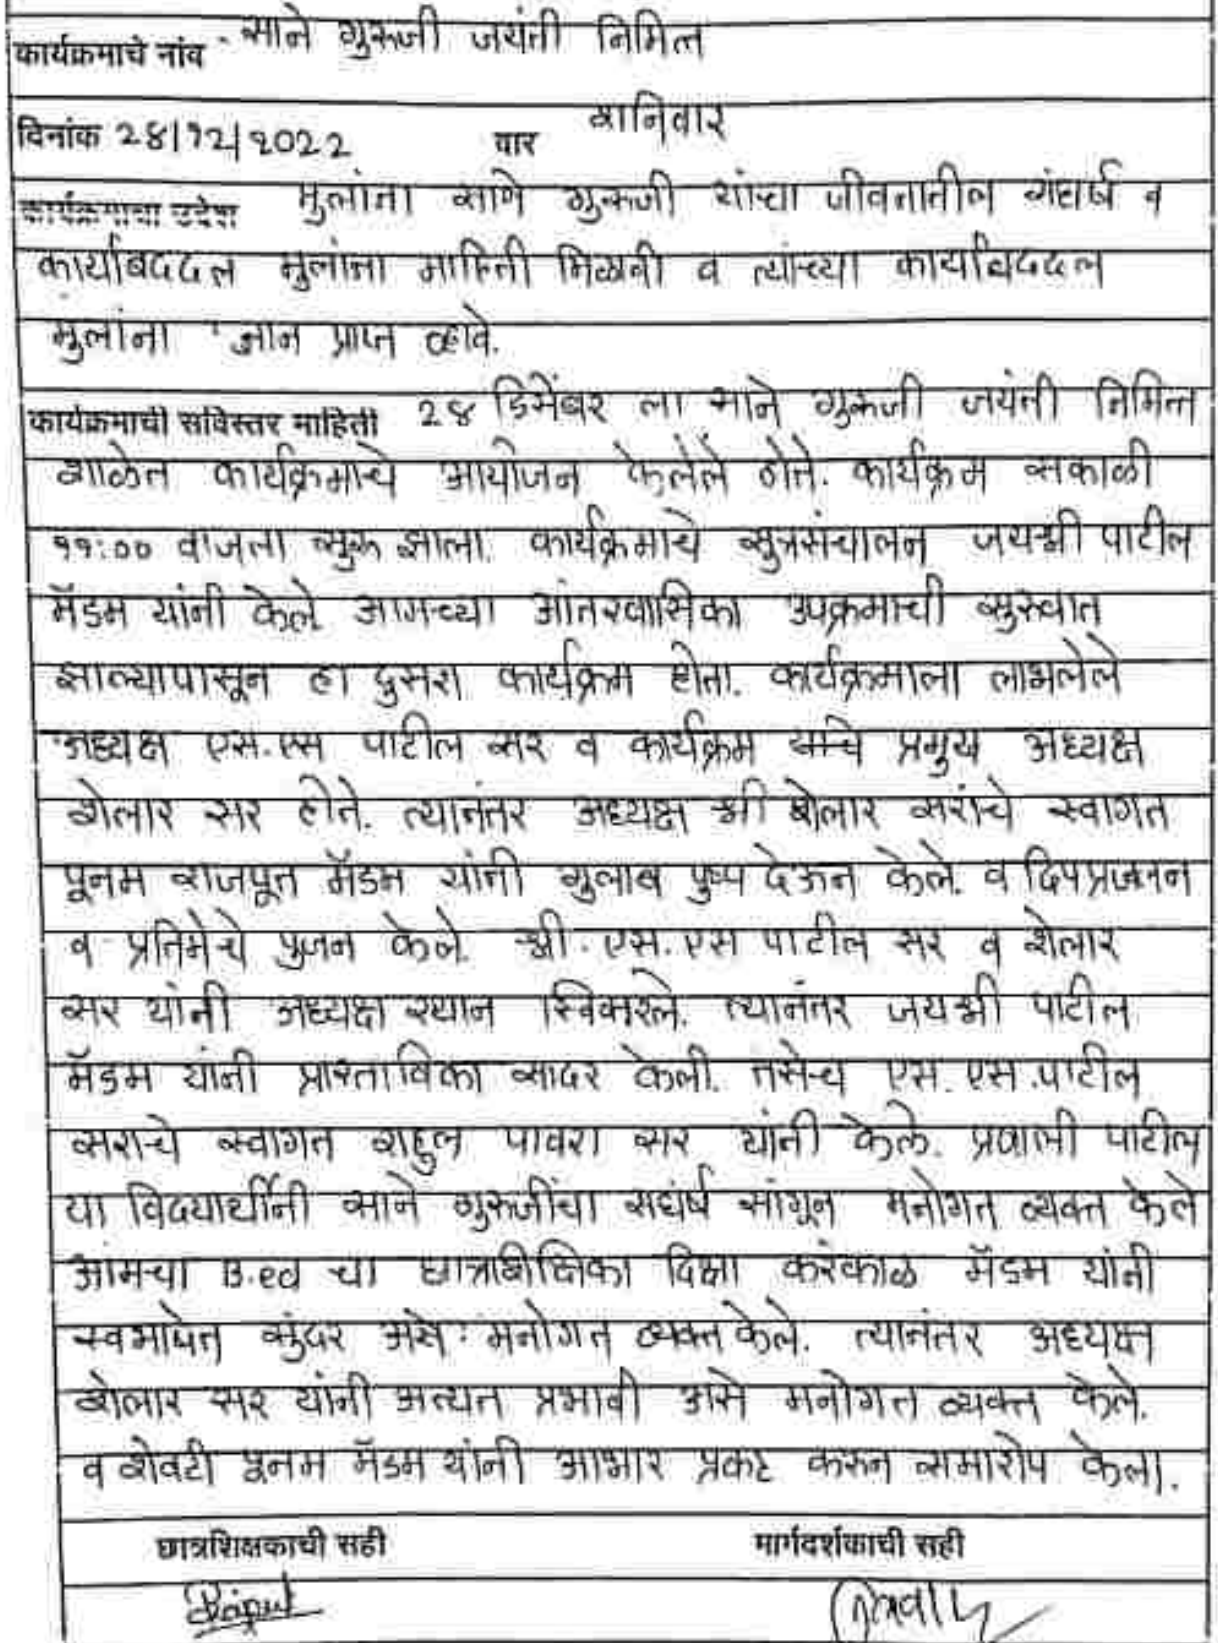 कार्यक्रमाचे नांव - साने गुरुजी जयंती निमित्त
दिनांक 24/12/2022 वार शनिवार
कार्यक्रमाचा उद्देश मुलांना साने गुरुजी यांचा जीवनातील संघर्ष व
कार्याबद्दल मुलांना माहिती मिळावी व त्यांच्या कार्याबद्दल
मुलांना ज्ञान प्राप्त व्हावे.
कार्यक्रमाची सविस्तर माहिती 24 डिसेंबर ला साने गुरुजी जयंती निमित्त
शाळेत कार्यक्रमाचे आयोजन केलेले होते. कार्यक्रम सकाळी
११:०० वाजता सुरू झाला. कार्यक्रमाचे सुत्रसंचालन जयश्री पाटील
मॅडम यांनी केले आमच्या आंतरवासिका उपक्रमाची सुरुवात
झाल्यापासून हा दुसरा कार्यक्रम होता. कार्यक्रमाला लाभलेले
अध्यक्ष एस.एस पाटील सर व कार्यक्रम प्रमुख अध्यक्ष
शेलार सर होते. त्यानंतर अध्यक्ष श्री शेलार सरांचे स्वागत
पूनम राजपूत मॅडम यांनी गुलाब पुष्प देऊन केले. व दिपप्रज्वलन
व प्रतिमेचे पुजन केले. श्री. एस.एस पाटील सर व शेलार
सर यांनी अध्यक्ष स्थान स्विकारले. त्यानंतर जयश्री पाटील
मॅडम यांनी प्रास्ताविका सादर केली. तसेच एस. एस. पाटील
सराचे स्वागत राहुल पावरा सर यांनी केले. पाटील
या विदयार्थीनी साने गुरुजींचा सघंर्ष सांगून मनोगत व्यक्त केले
आमचा B.ed चा छात्राशिक्षिका दिक्षा करंकाळ मॅडम यांनी
स्वभाषेत सुंदर असे मनोगत व्यक्त केले. त्यानंतर अध्यक्ष
शेलार सर यांनी अत्यंत प्रभावी असे मनोगत व्यक्त केले.
व शेवटी पूनम मॅडम यांनी आभार प्रकट करून समारोप केला.
छात्रशिक्षकाची सही मार्गदर्शकाची सही